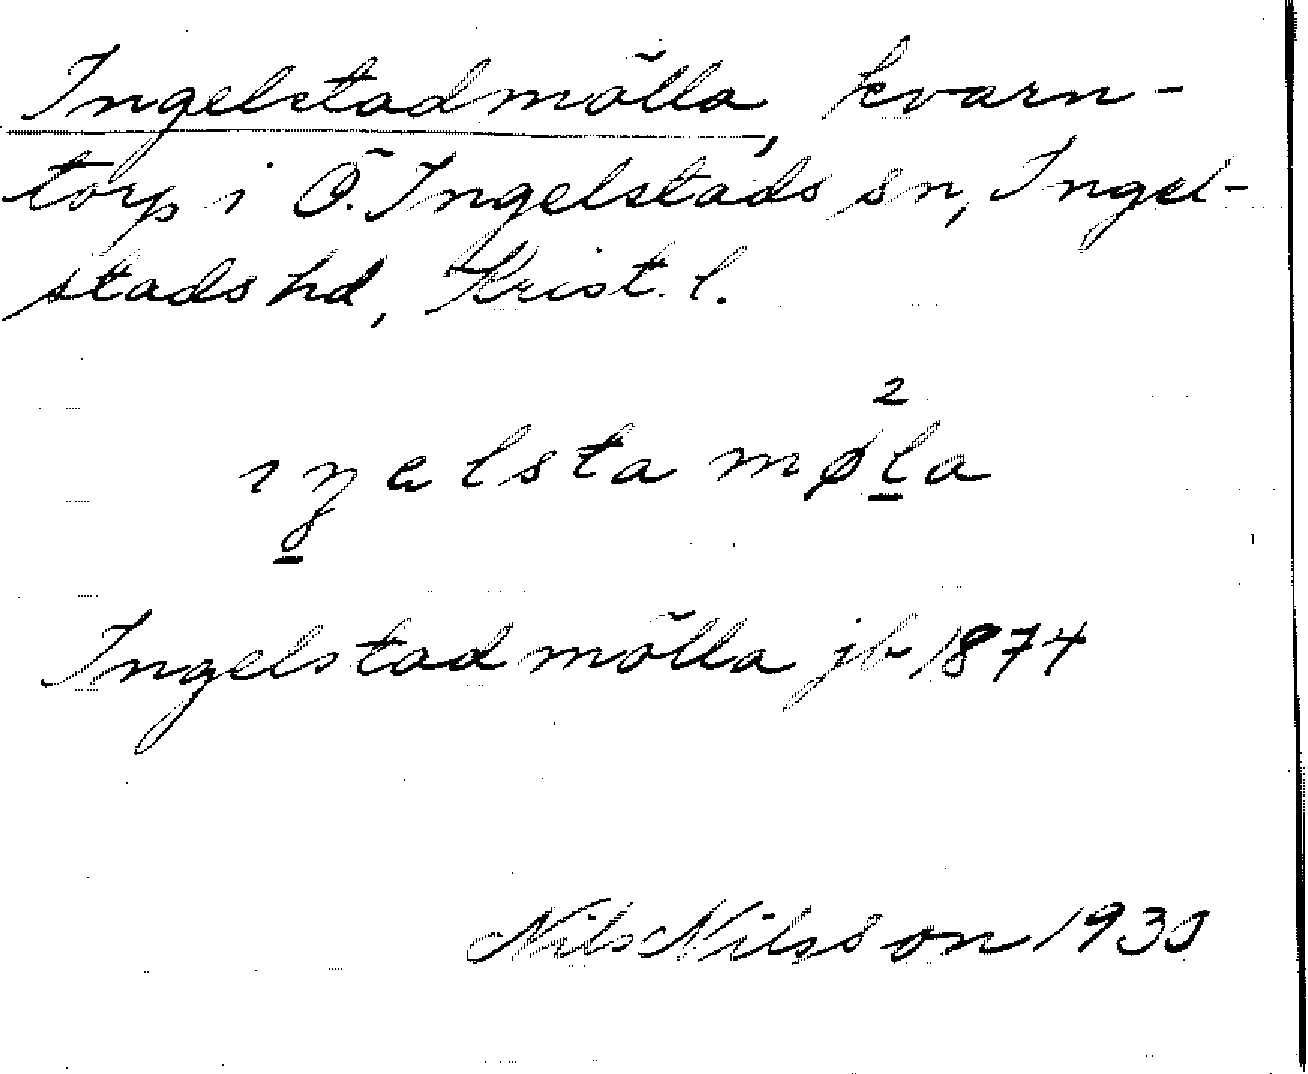 Ingelstadmölla, kvarn-
torp i Ö. Ingelstads sn, Ingel-
stads hd, Krist. l.
2
ıŋelsta møla
Ingelstadmölla jb 1874
Nils Nilsson 1930